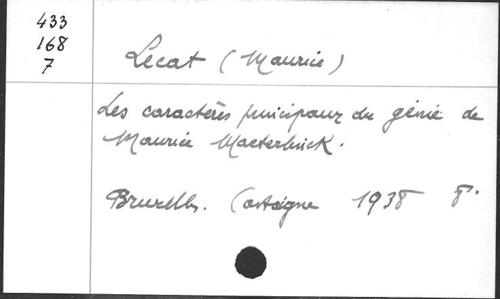 433
168
7
Lecat (Maurice)
Les caractères principaux du génie de
Maurice Maeterlinck.
Bruxelles. Castaigne 1938 8°.